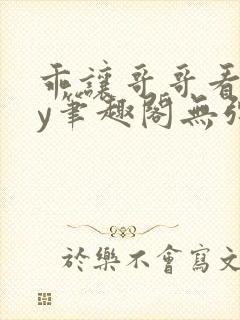 乖讓哥哥看
y筆趣閣無弹
於樂不會寫文